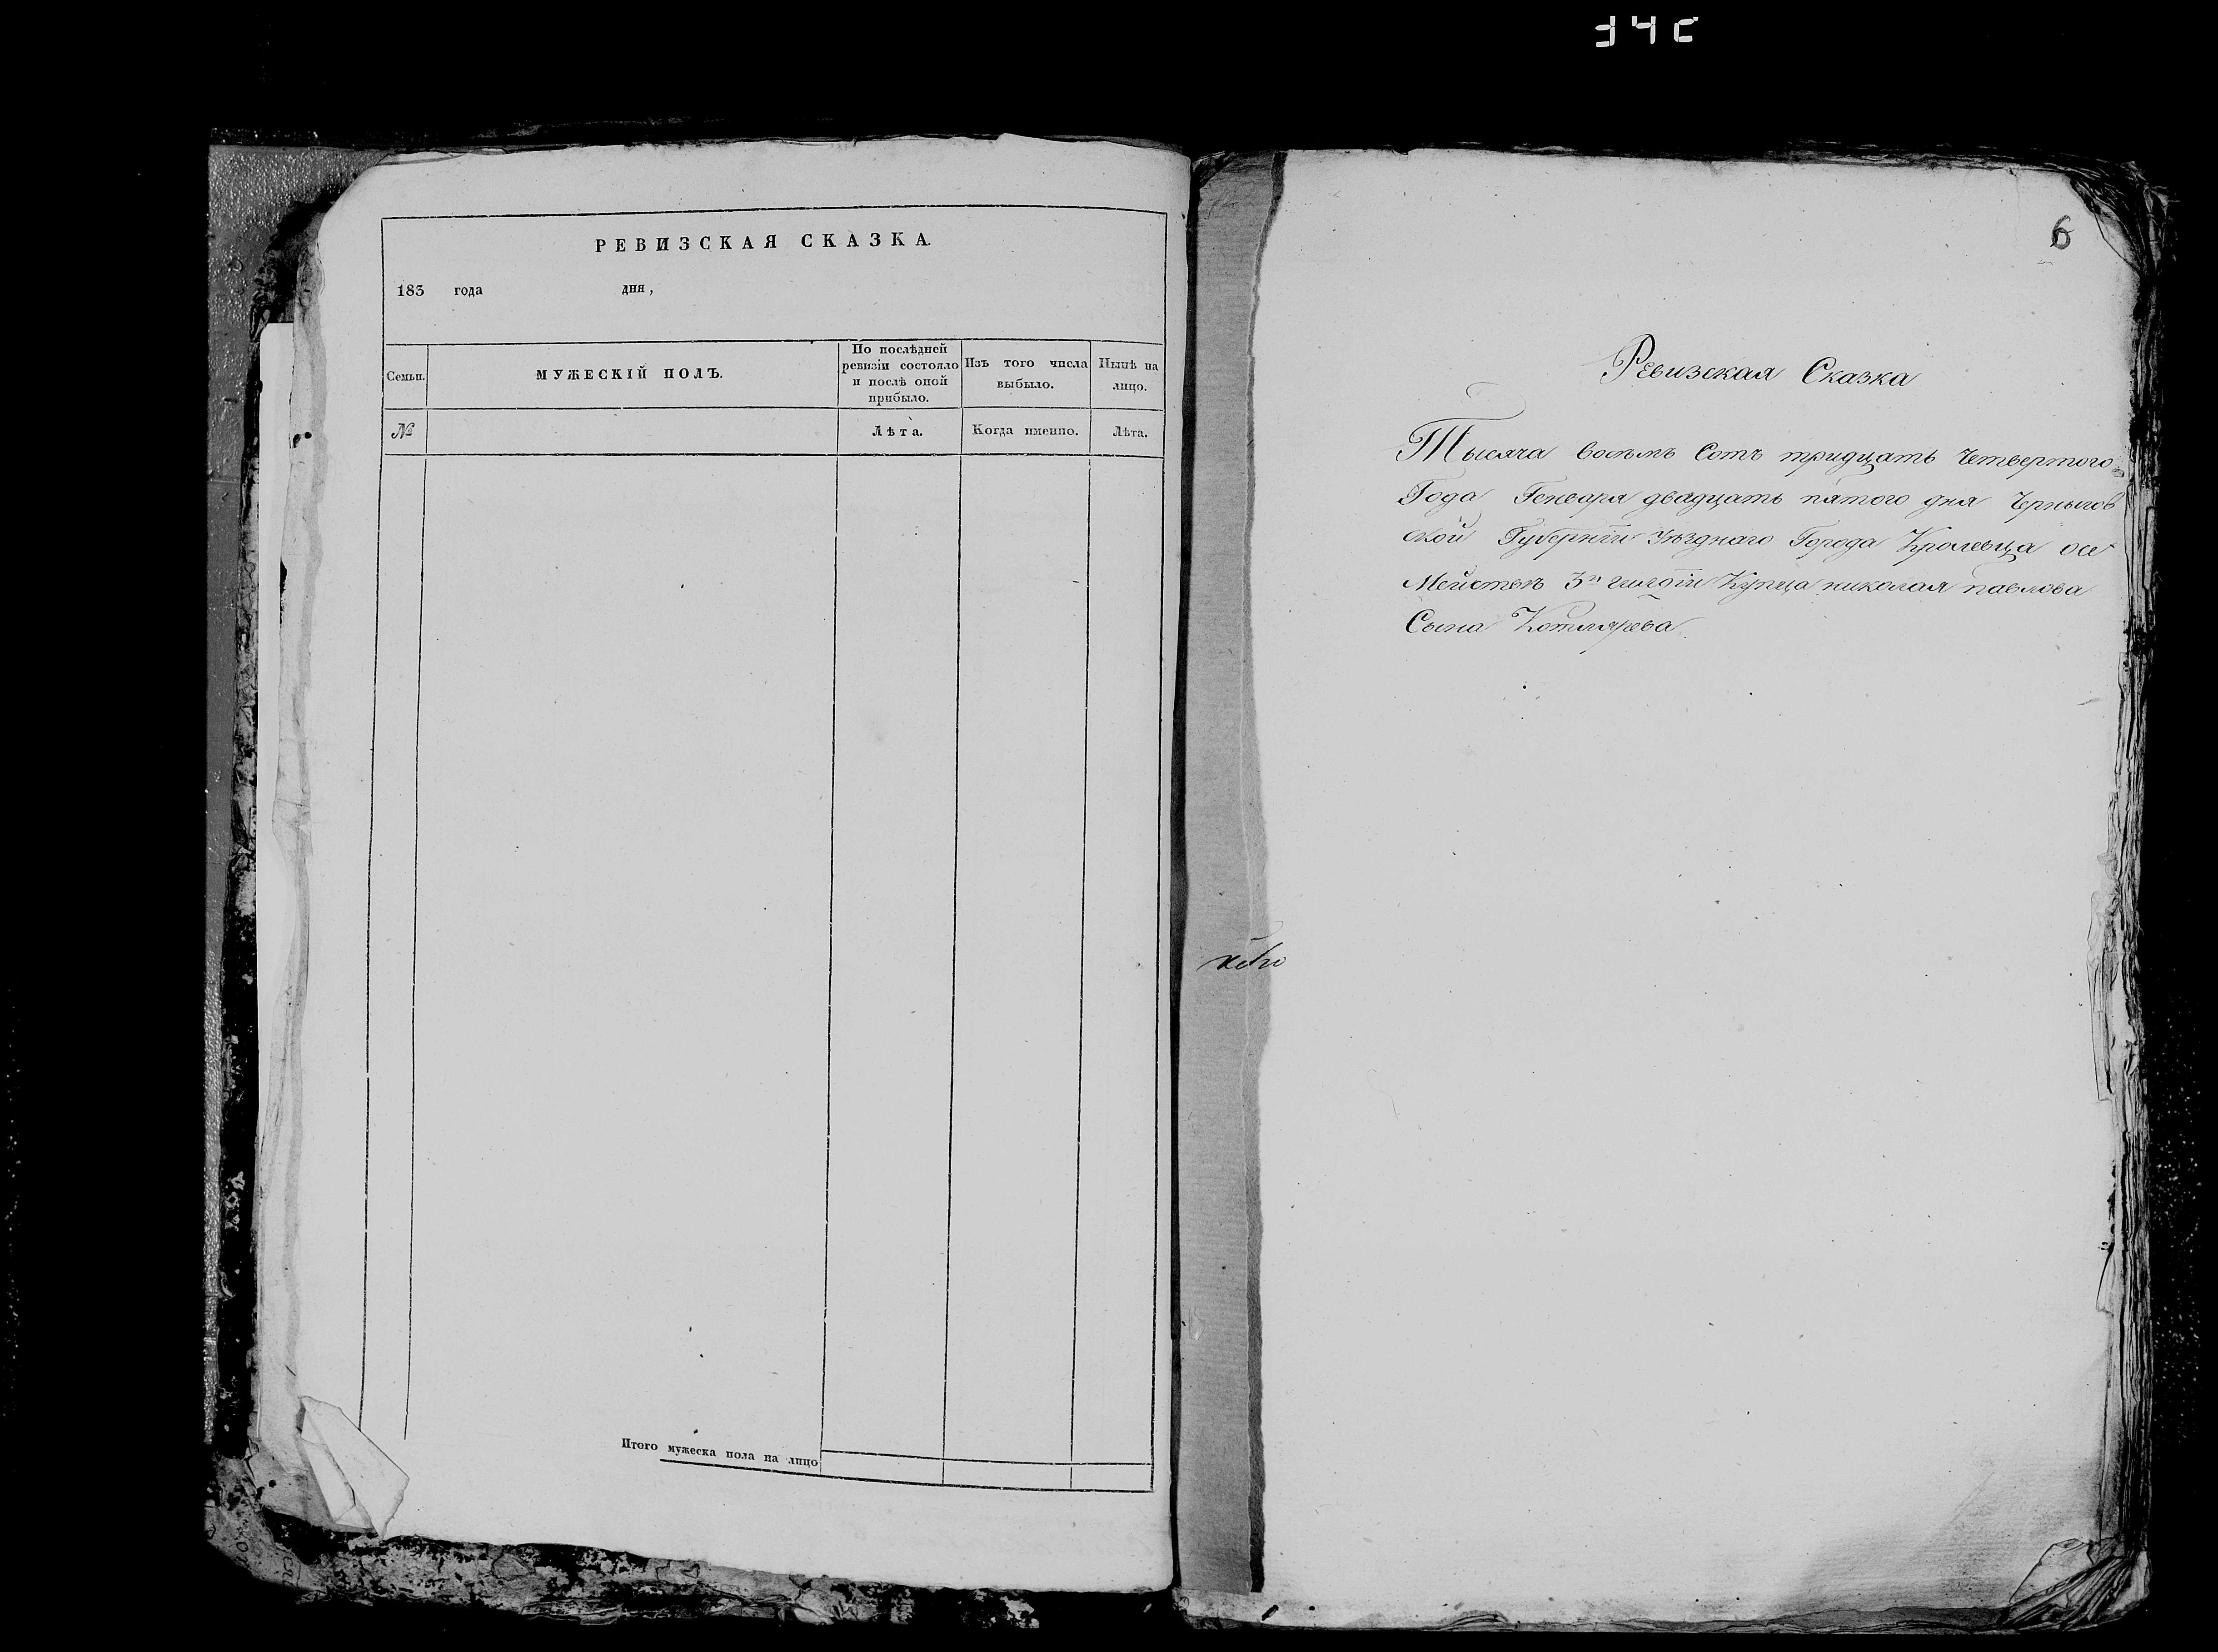 РЕВИЗСКАЯ СКАЗКА.
183 года дня,
Семьи.
МУЖЕСКІЙ ПОЛЪ.
По послѣдней
ревизіи состояло
и послѣ оной
прибыло.
Изъ того числа
выбыло.
Нынѣ на
лицо.
№
Лѣта.
Когда именно.
Лѣта.
Итого мужеска пола на лицо
6
Ревизская Сказка
Тысяча восемъ Сотъ тридцать Четвертого
Года Генваря двадцать пятого дня Черныгов
ской Губерніи Уѣзднаго Города Кролевца
3й гилдіи Купца николая павлова
Сына Котлярева